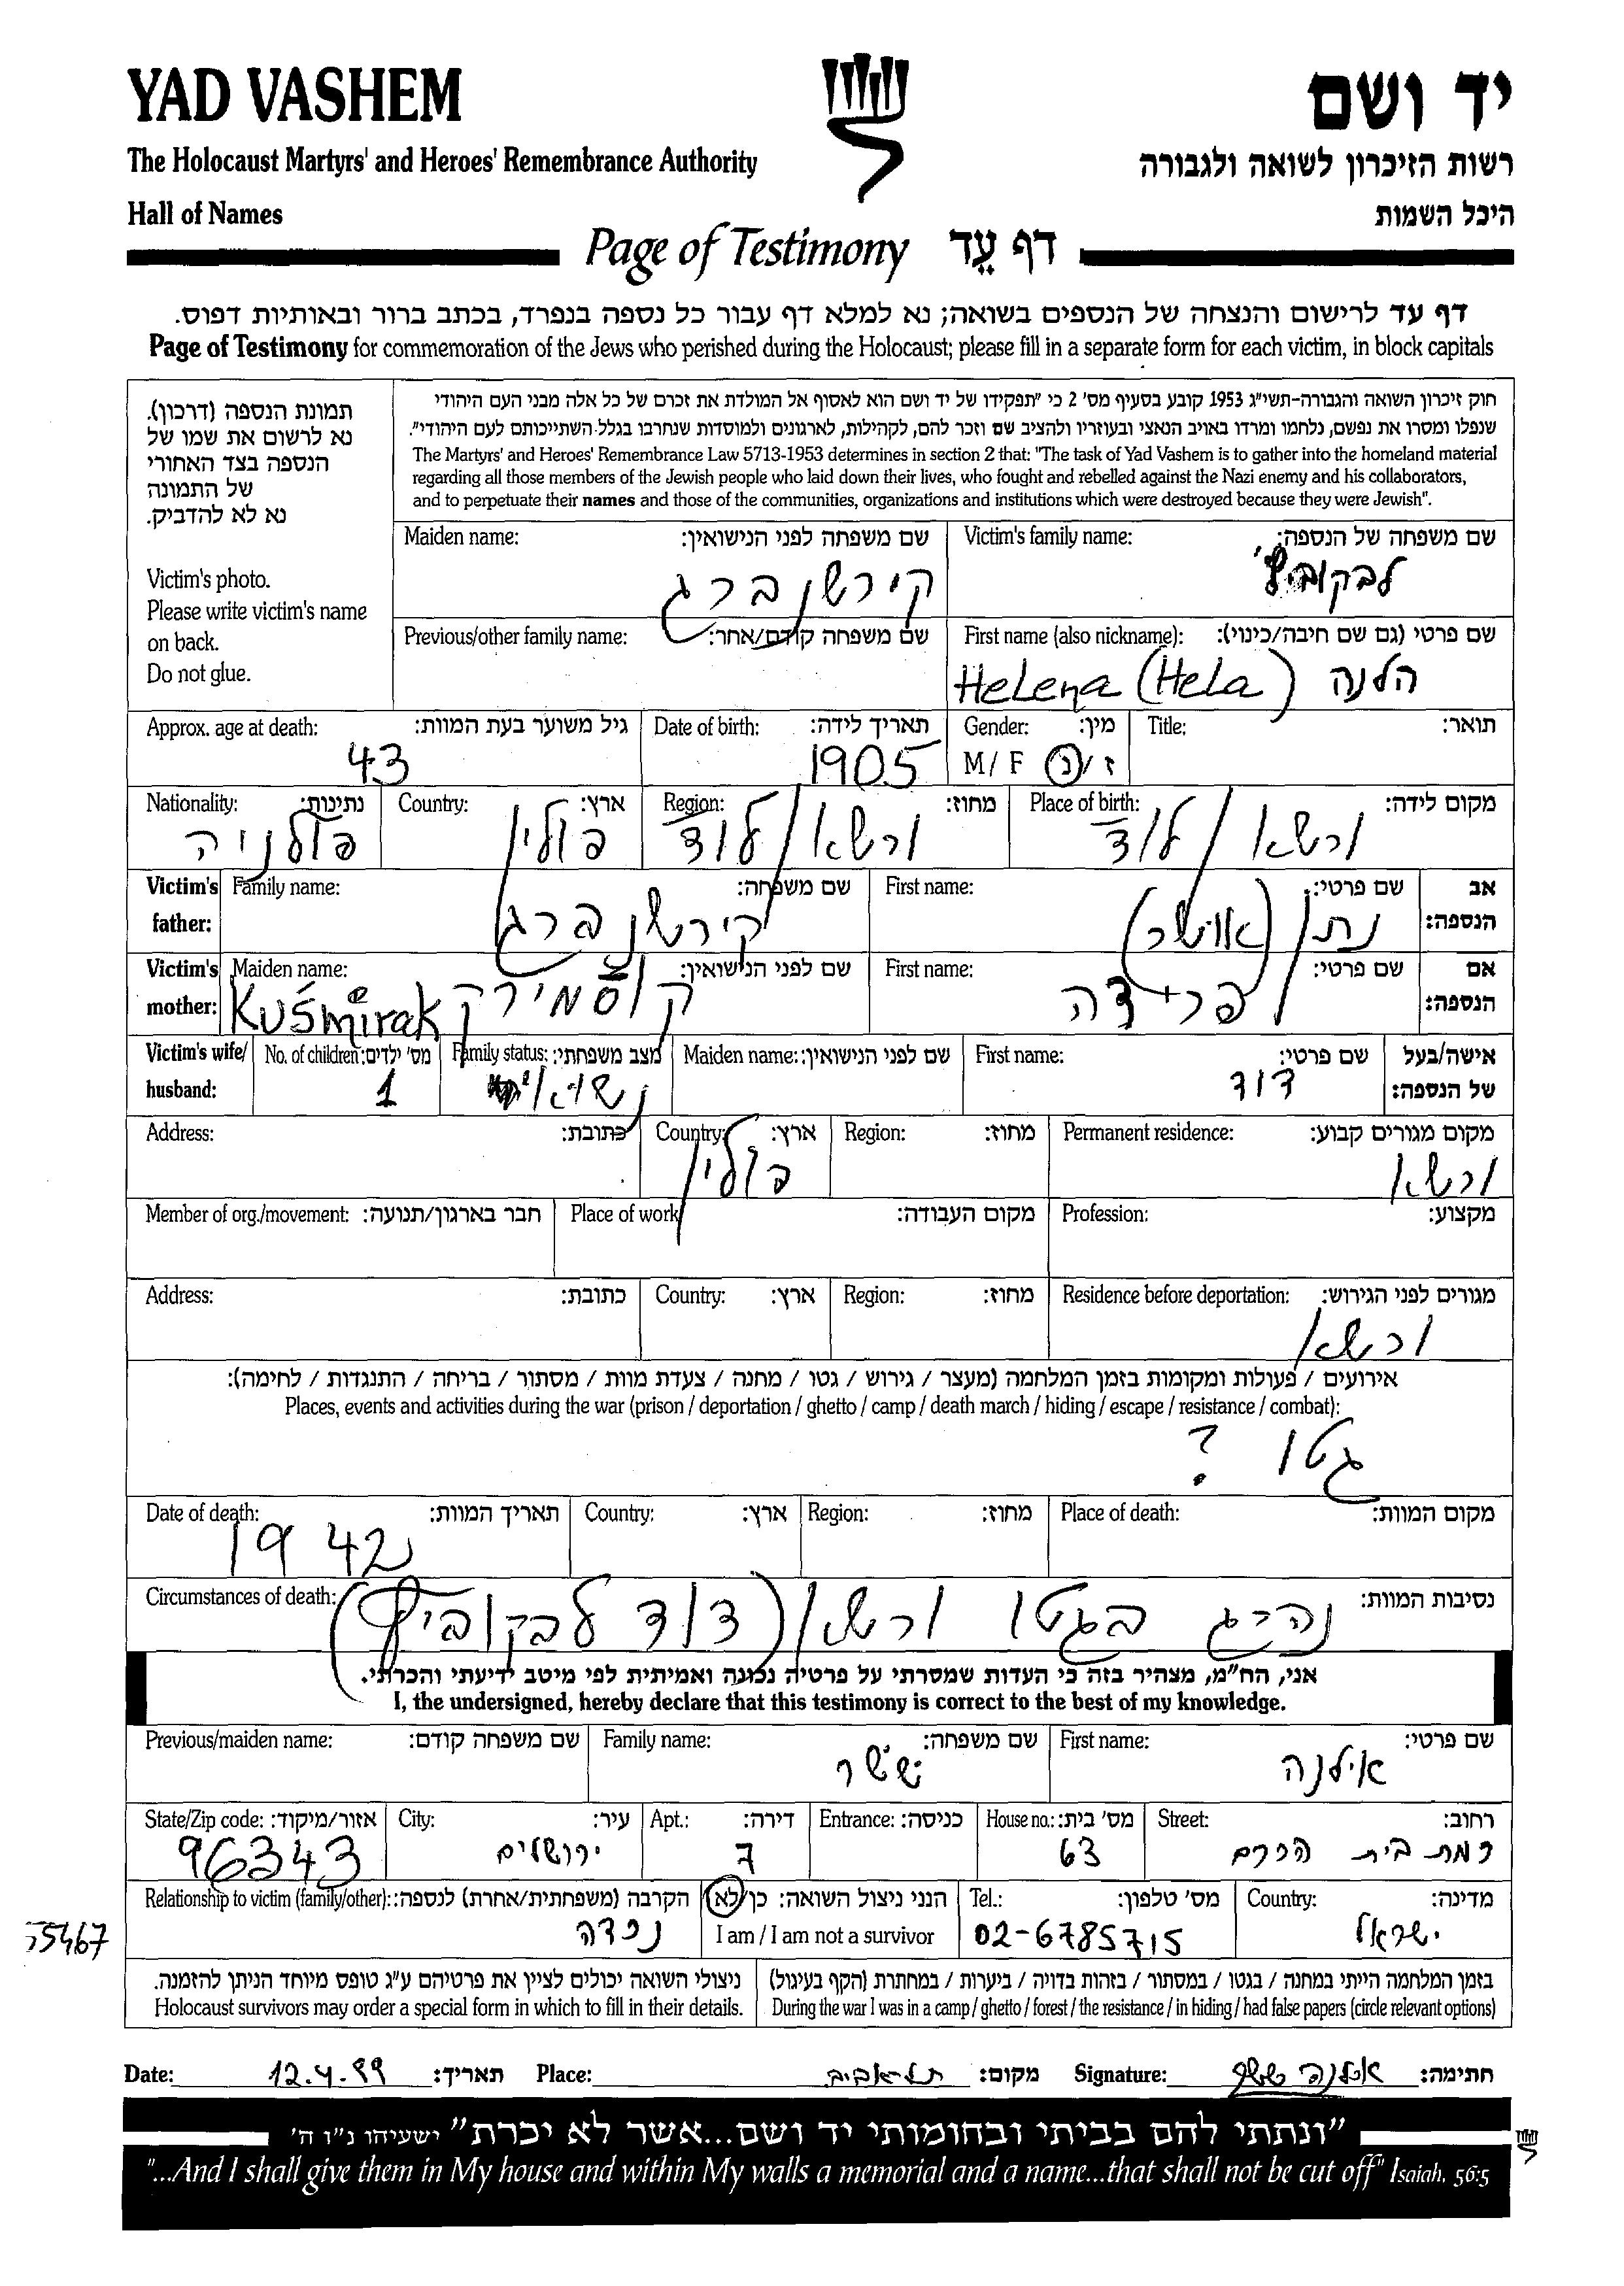 YAD VASHEM
יד ושם
The Holocaust Martyrs' and Heroes' Remembrance Authority
רשות הזיכרון לשואה ולגבורה
Hall of Names
היכל השמות
Page of Testimony דף עֵד
דף עד לרישום והנצחה של הנספים בשואה; נא למלא דף עבור כל נספה בנפרד, בכתב ברור ובאותיות דפוס.
Page of Testimony for commemoration of the Jews who perished during the Holocaust; please fill in a separate form for each victim, in block capitals
תמונת הנספה (דרכון).
נא לרשום את שמו של
הנספה בצד האחורי
של התמונה
נא לא להדביק.
Victim's photo.
Please write victim's name
on back.
Do not glue.
חוק זיכרון השואה והגבורה-תשי"ג 1953 קובע בסעיף מס' 2 כי "תפקידו של יד ושם הוא לאסוף אל המולדת את זכרם של כל אלה מבני העם היהודי
שנפלו ומסרו את נפשם, נלחמו ומרדו באויב הנאצי ובעוזריו ולהציב שם וזכר להם, לקהילות, לארגונים ולמוסדות שנחרבו בגלל השתייכותם לעם היהודי".
The Martyrs' and Heroes' Remembrance Law 5713-1953 determines in section 2 that: "The task of Yad Vashem is to gather into the homeland material
regarding all those members of the Jewish people who laid down their lives, who fought and rebelled against the Nazi enemy and his collaborators,
and to perpetuate their names and those of the communities, organizations and institutions which were destroyed because they were Jewish".
Victim's family name: שם משפחה של הנספה:
לבקוביץ'
Maiden name: שם משפחה לפני הנישואין:
קירשנברג
First name (also nickname): שם פרטי (גם שם חיבה/כינוי):
הלנה Helena (Hela)
Previous/other family name: שם משפחה קודם/אחר:
Title: תואר:
Gender: מין:
M/ F ז/נ
Date of birth: תאריך לידה:
1905
Approx. age at death: גיל משוער בעת המוות:
43
Place of birth: מקום לידה:
ורשא/לודז
Region: מחוז:
ורשא/לודז
Country: ארץ:
פולין
Nationality: נתינות:
פולניה
Victim's father: אב הנספה:
First name: שם פרטי:
נתן (אושר)
Family name: שם משפחה:
קירשנברג
Victim's mother: אם הנספה:
First name: שם פרטי:
פרידה
Maiden name: שם לפני הנישואין:
קוסמירק Kuśmirak
Victim's wife/ husband: אישה/בעל של הנספה:
First name: שם פרטי:
דוד
Maiden name: שם לפני הנישואין:
Family status: מצב משפחתי:
No. of children: מס' ילדים:
1
Permanent residence: מקום מגורים קבוע:
ורשא
Region: מחוז:
Country: ארץ:
פולין
Address: כתובת:
Profession: מקצוע:
Place of work מקום העבודה:
Member of org./movement: חבר בארגון/תנועה:
Residence before deportation: מגורים לפני הגירוש:
ורשא
Region: מחוז:
Country: ארץ:
Address: כתובת:
אירועים / פעולות ומקומות בזמן המלחמה (מעצר / גירוש / גטו / מחנה / צעדת מוות / מסתור / בריחה / התנגדות / לחימה):
Places, events and activities during the war (prison / deportation / ghetto / camp / death march / hiding / escape / resistance / combat):
גטו ?
Place of death: מקום המוות:
Region: מחוז:
Country: ארץ:
Date of death: תאריך המוות:
1942
Circumstances of death: נסיבות המוות:
נהרג בגטו ורשא (דוד לבקוביץ)
אני, הח"מ, מצהיר בזה כי העדות שמסרתי על פרטיה נכונה ואמיתית לפי מיטב ידיעתי והכרתי.
I, the undersigned, hereby declare that this testimony is correct to the best of my knowledge.
First name: שם פרטי:
אילנה
Family name: שם משפחה:
ששר
Previous/maiden name: שם משפחה קודם:
Street: רחוב:
רמת בית הכרם
House no.: מס' בית:
63
Entrance: כניסה:
Apt.: דירה:
7
City: עיר:
ירושלים
State/Zip code: אזור/מיקוד:
96343
Country: מדינה:
ישראל
Tel.: מס' טלפון:
02-6785715
הנני ניצול השואה: כן/לא
I am / I am not a survivor
Relationship to victim (family/other): הקרבה (משפחתית/אחרת) לנספה:
נכדה
בזמן המלחמה הייתי במחנה / בגטו / במסתור / בזהות בדויה / ביערות / במחתרת (הקף בעיגול)
During the war I was in a camp / ghetto / forest / the resistance / in hiding / had false papers (circle relevant options)
ניצולי השואה יכולים לציין את פרטיהם ע"ג טופס מיוחד הניתן להזמנה.
Holocaust survivors may order a special form in which to fill in their details.
Date: 12.4.99 תאריך: Place: תל אביב מקום: Signature: אילנה ששר חתימה:
"ונתתי להם בביתי ובחומותי יד ושם...אשר לא יכרת" ישעיהו נ"ו ה'
"...And I shall give them in My house and within My walls a memorial and a name...that shall not be cut off" Isaiah, 56:5